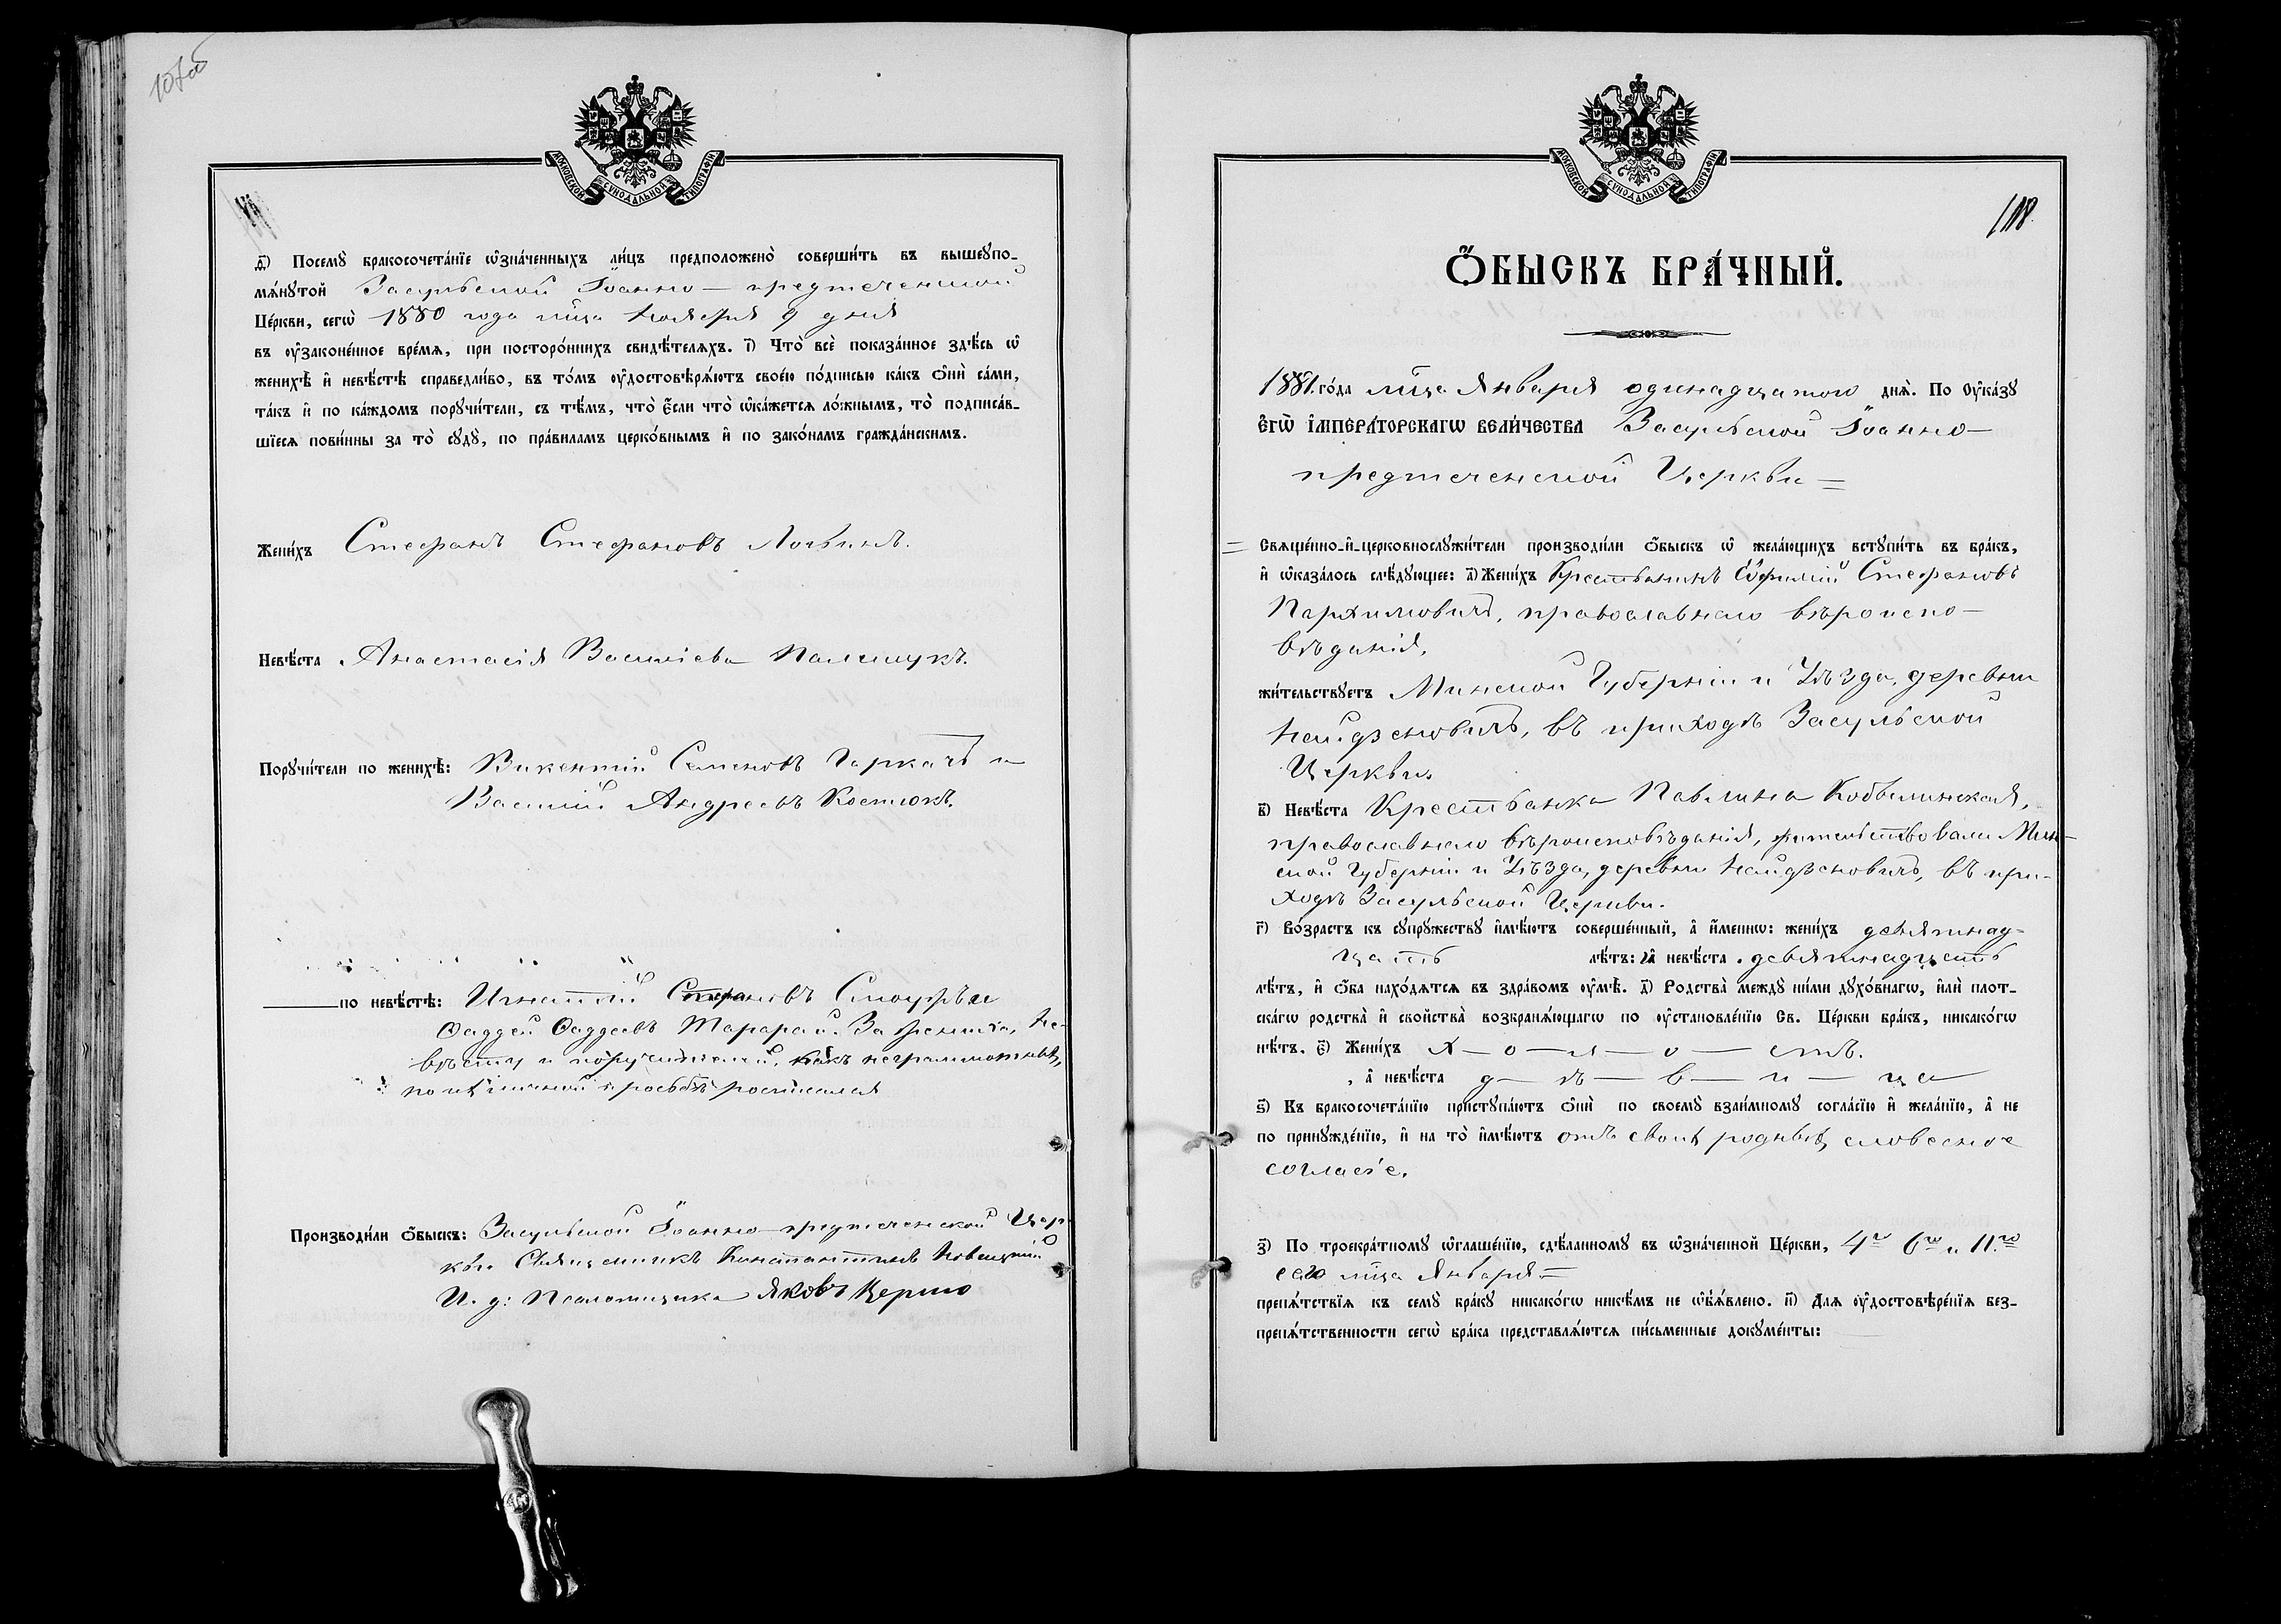 107об
МОСКОВСКОЙ СѴНОДАЛЬНОЙ ТИПОГРАФІИ
д҃) Посемꙋ̀ бракосочета́нїе ѡ҆зна́ченныхъ ли́цъ предположено̀ соверши́ть въ вышеꙋпо-
мѧ́нꙋтой Засульской Іоанно-предтеченской
Це́ркви, сегѡ̀ 1880 года мца Ноября 9 дня
въ ᲂу҆законе́нное вре́мѧ, при посторо́ннихъ свидѣ́телѧхъ. і҃) Что̀ всѐ показа́нное здѣ́сь ѡ҆
женихѣ̀ и҆ невѣ́стѣ справедли́во, въ то́мъ ᲂу҆достовѣрѧ́ютъ свое́ю по́дписью ка́къ ѻ҆нѝ са́ми,
та́къ и҆ по ка́ждомъ порꙋчи́тели, съ тѣ́мъ, что̀ є҆́сли что̀ ѡ҆ка́жетсѧ ло́жнымъ, то̀ подписа́в-
шїесѧ пови́нны за то̀ сꙋдꙋ̀, по пра́виламъ церко́внымъ и҆ по зако́намъ гражда́нскимъ.
Жени́хъ Стефанъ Стефановъ Логвинъ.
Невѣ́ста Анастасія Василіева Палищукъ.
Порꙋчи́тели по женихѣ̀: Викентій Семеновъ Горкачъ и
Василій Андреевъ Костюкъ.
по невѣ́стѣ: Игнатій Стефановъ и
Фаддей Фаддеевъ Тарарай. За жениха, не-
вѣсту и поручителей, какъ неграмотныхъ,
по ихъ личной просьбѣ росписался
Производи́ли ѻ҆́быскъ: Засульской Іоанно-предтеченской Цер-
кви Священникъ Константинъ
И. д: Псаломщика Яковъ Церпо
МОСКОВСКОЙ СѴНОДАЛЬНОЙ ТИПОГРАФІИ
108.
Ѻ҆́БЫСКЪ БРА́ЧНЫЙ.
1881.го́да мца Января одинадцатого днѧ̀. По ᲂу҆ка́зꙋ
Є҆ГѠ̀ И҆МПЕРА́ТОРСКАГѠ ВЕЛИ́ЧЕСТВА Засульской Іоанно-
предтеченской Церкви =
= Свѧще́нно-и҆-церковнослꙋжи́тели производи́ли ѻ҆́быскъ ѡ҆ жела́ющихъ встꙋпи́ть въ бра́къ,
и҆ ѡ҆каза́лось слѣ́дꙋющее: а҃) Жени́хъ Крестьянинъ Евфимій Стефановъ
Пархимовичъ, православнаго вѣроиспо-
вѣданія,
жи́тельствꙋетъ Минской Губерніи и Уѣзда, деревни
Нейдзеновичъ, въ приходѣ Засульской
Церкви.
в҃) Невѣ́ста Крестьянка Павлина Кобылинская,
православнаго вѣроисповѣданія, жительствовала Мин-
ской Губерніи и Уѣзда, деревни Нейдзеновичъ, въ при-
ходѣ Засульской Церкви.
г҃) Во́зрастъ къ сꙋпрꙋ́жествꙋ и҆мѣ́ютъ соверше́нный, а҆ и҆́меннѡ: жени́хъ девятнад-
цать лѣ́тъ: а҆ невѣ́ста девятнадцать
лѣ́тъ, и҆ ѻ҆́ба нахо́дѧтсѧ въ здра́вомъ ᲂу҆мѣ̀. д҃) Родства̀ междꙋ ни́ми дꙋхо́внагѡ, и҆лѝ плот-
ска́гѡ родства̀ и҆ сво́йства возбранѧ́ющагѡ по ᲂу҆становле́нїю Св. Це́ркви бра́къ, никако́гѡ
нѣ́тъ. є҃) Жени́хъ х — о — л — о — стъ.
, а҆ невѣ́ста д — ѣ — в — и — ца
ѕ҃) Къ бракосочета́нїю пристꙋпа́ютъ ѻ҆нѝ по своемꙋ̀ взаи́мномꙋ согла́сїю и҆ жела́нїю, а҆ не
по принꙋжде́нїю, и҆ на то̀ и҆мѣ́ютъ отъ своихъ родныхъ словесное
согласіе.
з҃) По троекра́тномꙋ ѡ҆глаше́нїю, сдѣ́ланномꙋ въ ѡ҆зна́ченной Це́ркви, 4го 6го и 11.го
сего мца Января =
препѧ́тствїѧ къ семꙋ̀ бра́кꙋ никако́гѡ никѣ́мъ не ѡ҆б̾ѧ́влено. и҃) Длѧ ᲂу҆достовѣре́нїѧ без-
препѧ́тственности сегѡ̀ бра́ка представлѧ́ютсѧ пи́сьменные докꙋме́нты: